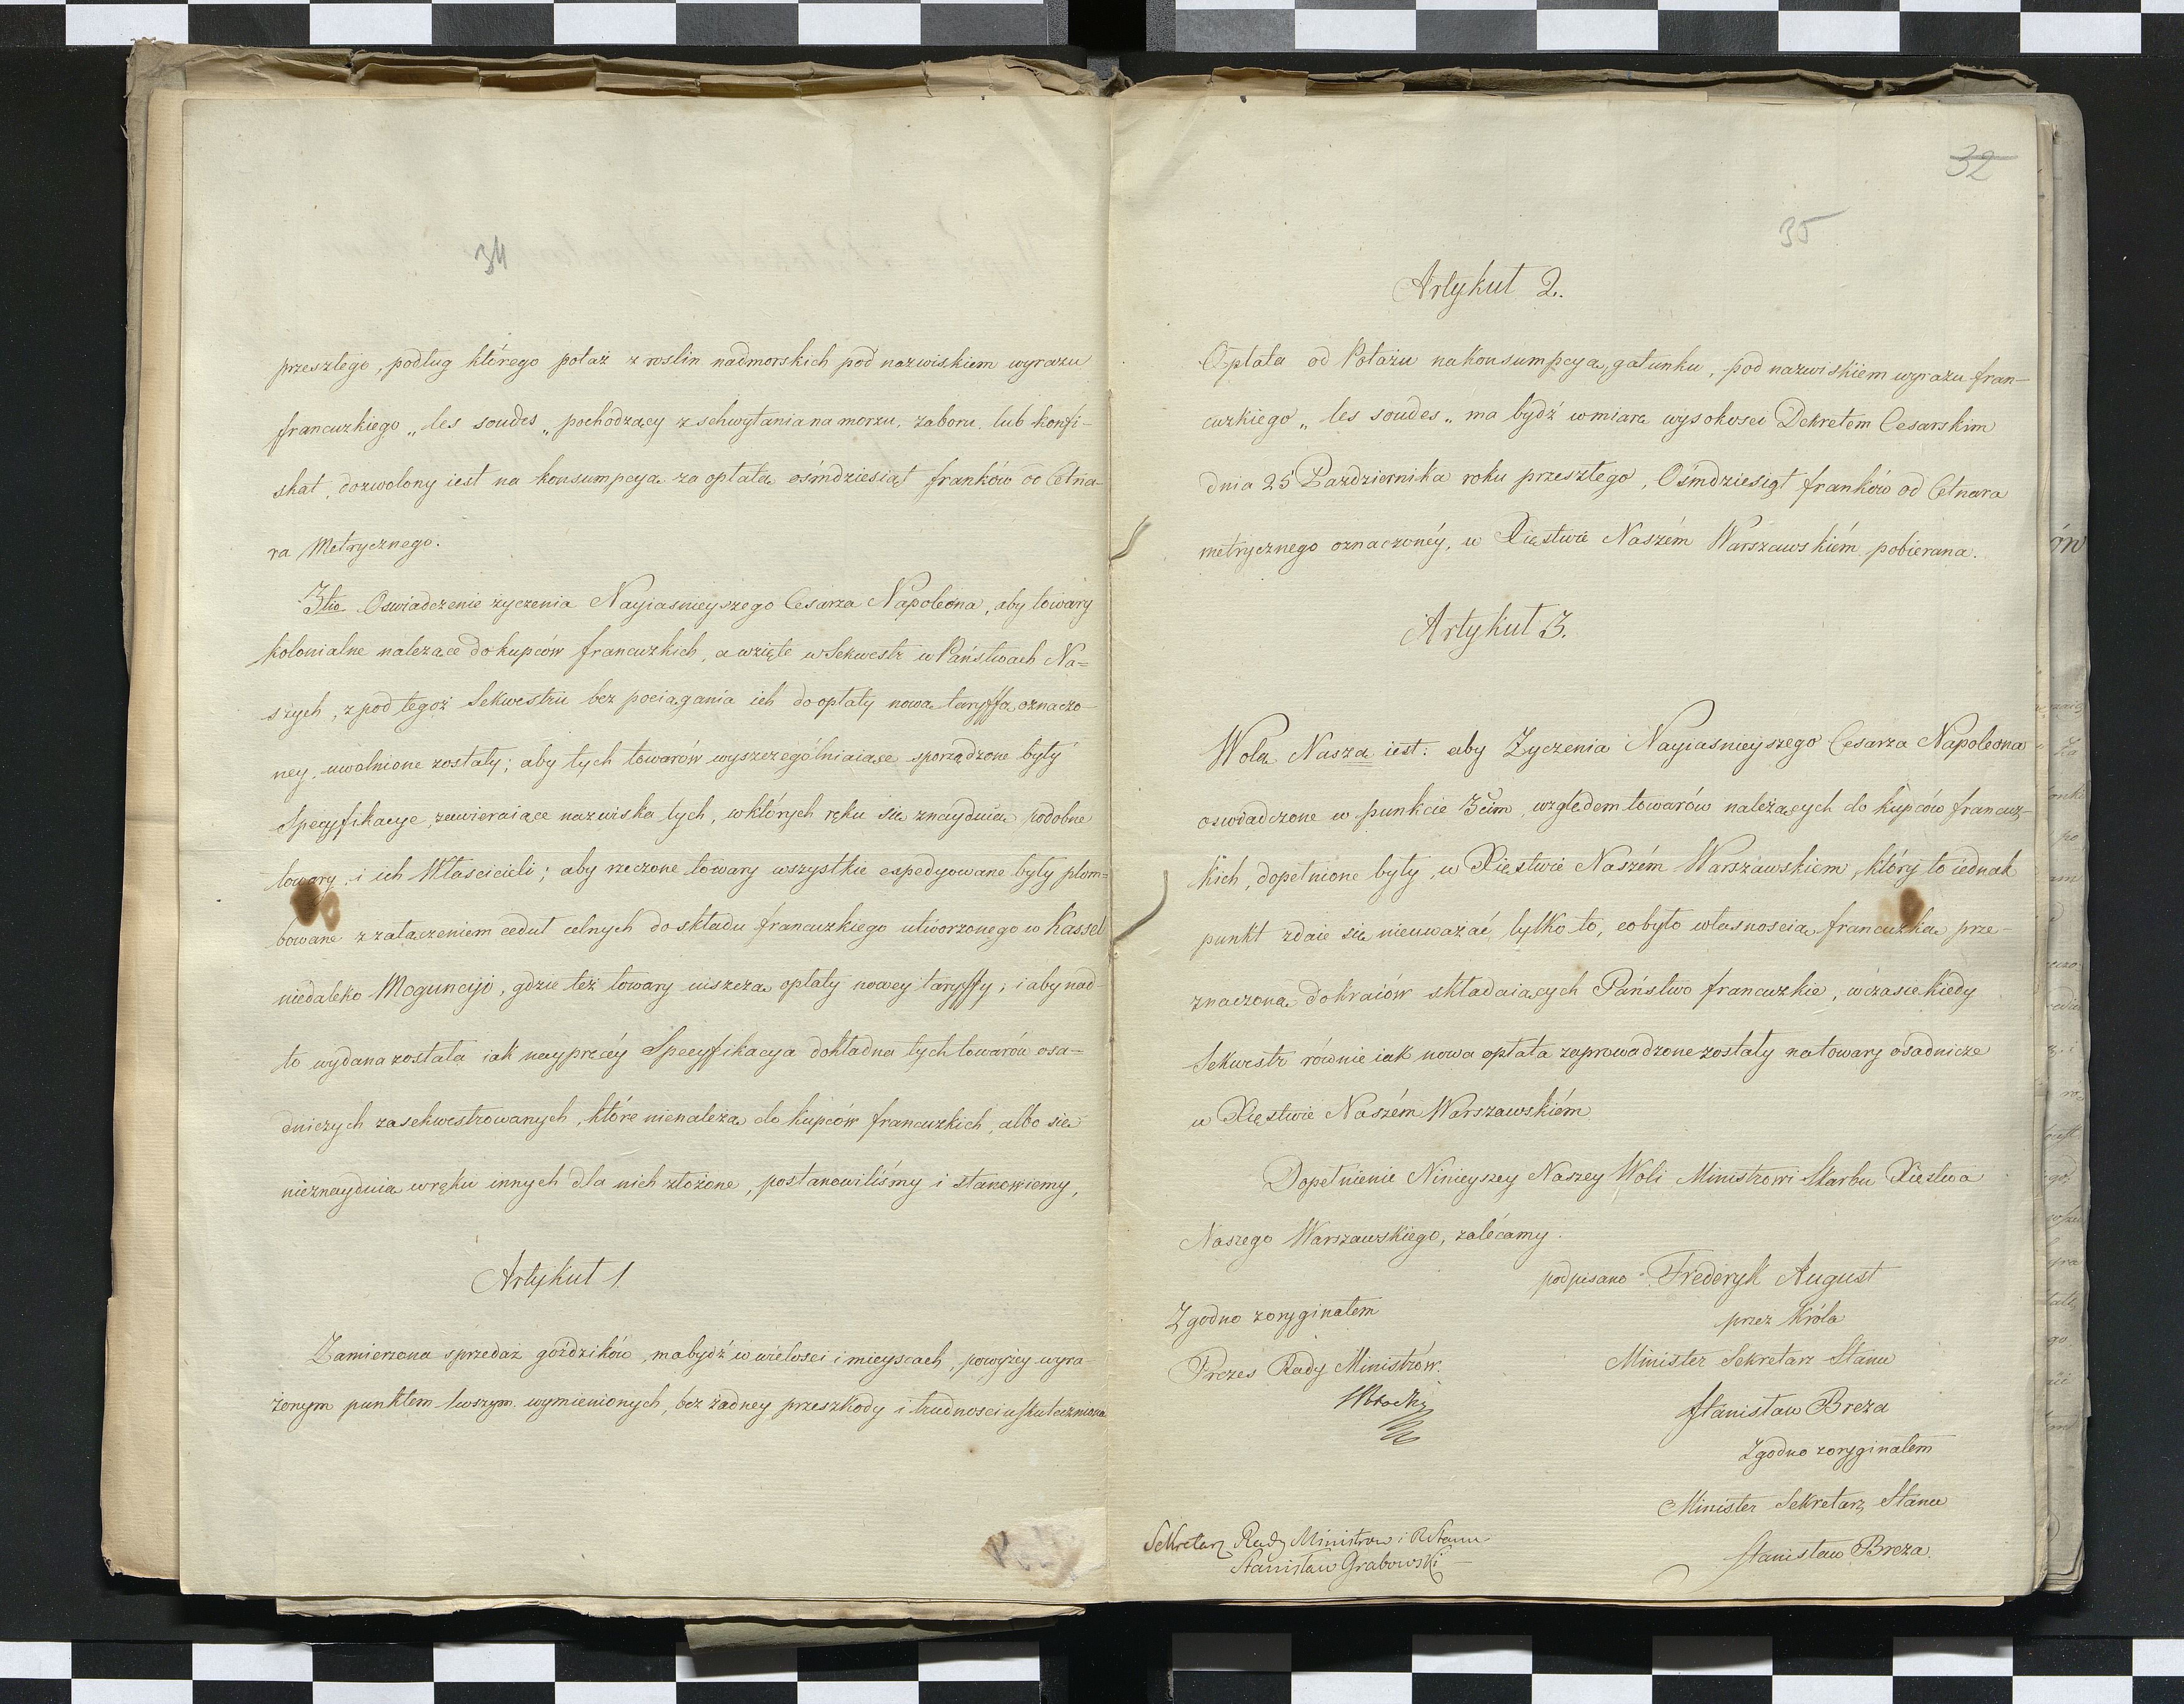 34
przeszłego, podług którego potaż z roslin nadmorskich pod nazwiskiem wyrazu
francuzkiego „les soudes„ pochodzący z schwytania na morzu, zaboru, lub konfi-
skat, dozwolony iest na konsumpcyą za opłatą ośmdziesiąt franków od Cetna-
ra Metrycznego.
3tio Oswiadczenie życzenia Nayiasnieyszego Cesarza Napoleona, aby towary
kolonialne należące do kupców francuzkich, a wzięte w Sekwestr w Państwach Na=
szych, z pod tegoż Sekwestru bez pociągania ich do opłaty nową taryffą oznaczo-
ney, uwolnione zostały; aby tych towarów wyszczególniaiące sporządzone były
Specyfikacye, zawieraiące nazwiska tych, w których ręku się znayduią podobne
towary, i ich Właścicieli; aby rzeczone towary wszystkie expedyowane były plom-
bowane z załączeniem cedut celnych do składu francuzkiego utworzonego w Kassel
niedaleko Moguncyi, gdzie też towary uiszczą opłaty nowey taryffy; i aby nad-
to wydana została iak nayprędzéy Specyfikacya dokładna tych towarów osa-
dniczych zasekwestrowanych, które nienależą do kupców francuzkich, albo się
nieznayduią w ręku innych dla nich złożone, postanowiliśmy i stanowiemy,
Artykuł 1
Zamierzona sprzedaż goździków, ma bydź w wielosci i mieyscach, powyżey wyra-
żonym punktem 1wszym wymienionych, bez żadney przeszkody i trudnosci uskuteczniona
32
35
Artykuł 2.
Opłata od Potażu na konsumpcyą, gatunku, pod nazwiskiem wyrazu fran-
cuzkiego „les soudes„ ma bydź w miarę wysokosci Dekretem Cesarskim
dnia 25 Pazdziernika roku przeszłego, Ośmdziesiąt franków od Cetnara
metrycznego oznaczonéy, w Xięstwie Naszém Warszawskiém pobierana.
Artykuł 3.
Wolą Naszą iest: aby Zyczenia Nayiasnieyszego Cesarza Napoleona
oswiadczone w punkcie 3cim, względem towarów należących do kupców francuz-
kich, dopełnione były w Xięstwie Naszém Warszawskiem, który to iednak
punkt zdaie się nieuważać, tylko to, co było własnoscią francuzką prze-
znaczoną do kraiów składaiących Państwo francuzkie, w czasie kiedy
Sekwestr równie iak nowa opłata zaprowadzone zostały na towary osadnicze
w Xięstwie Naszém Warszawskiém
Dopełnienie Ninieyszey Naszey Woli Ministrowi Skarbu Xięstwa
Naszego Warszawskiego, zalécamy.
podpisano Frederyk August
przez Króla
Minister Sekretarz Stanu
Stanisław Breza
Zgodno z oryginałem
Minister Sekretarz Stanu
Stanisław Breza
Zgodno z oryginałem
Prezes Rady Ministrów
Sekretarz Rady Ministrów i R Stanu
Stanisław Grabowski